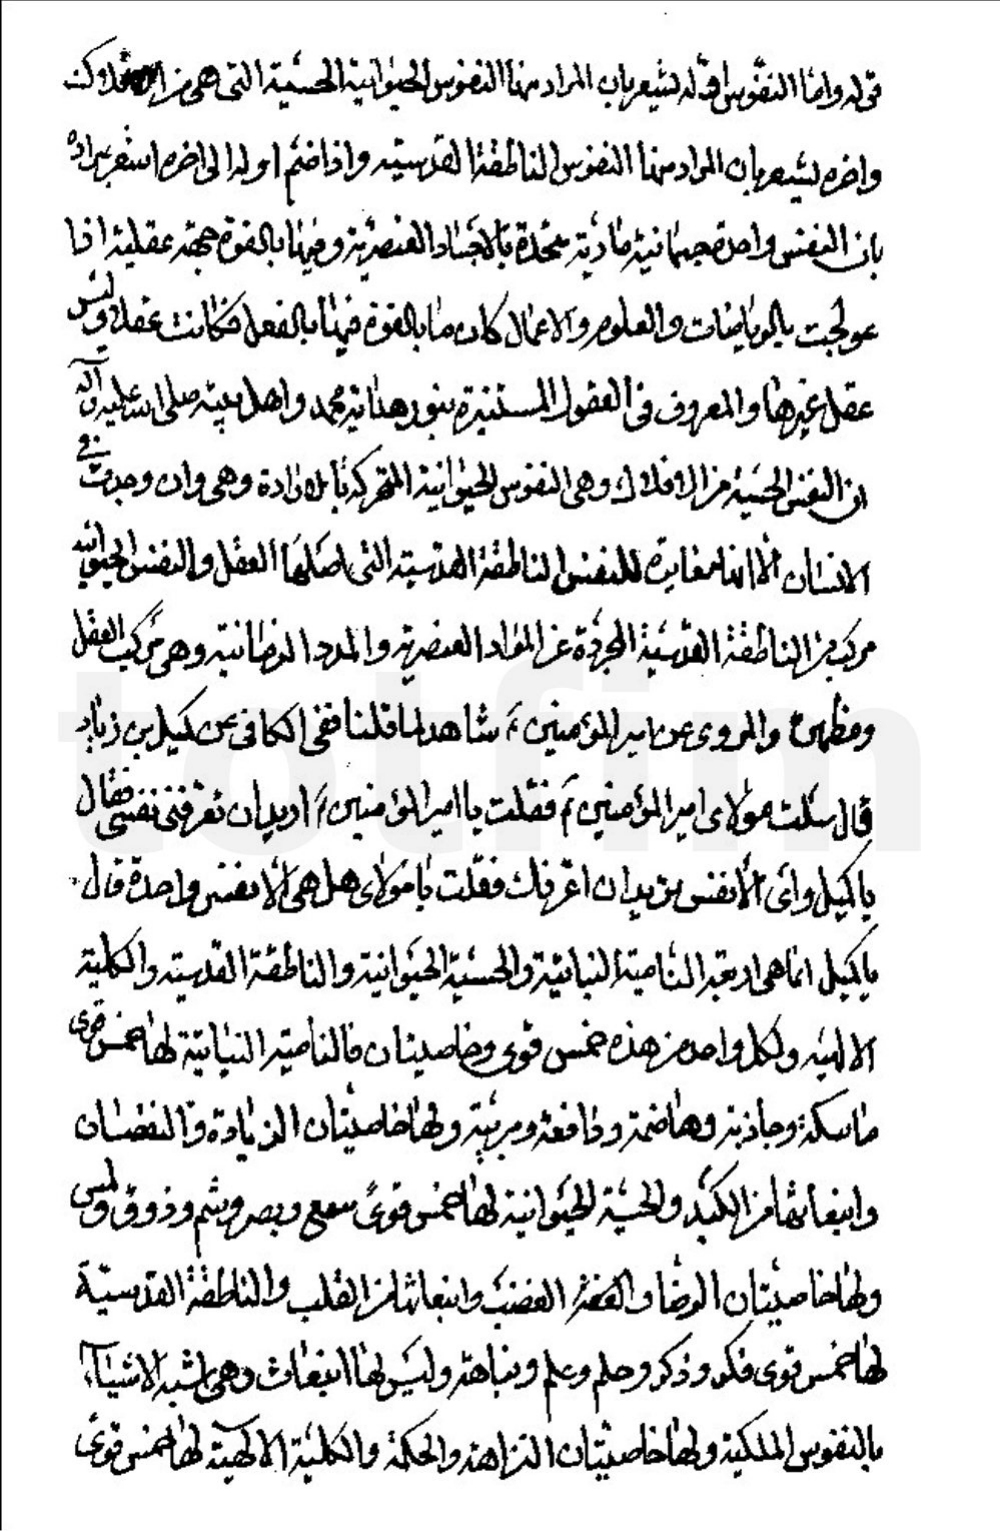 قوله واما النفوس اوله يشعر بان المراد منها النفوس الحيوانية الحسية التى هى من الافلاك
واخره يشعر بان المراد منها النفوس الناطقة القدسية واذا ضم اوله الى اخره اشعر بمراده
بان النفس واحدة جسمانية مادية متحدة بالاجساد العنصرية وفيها بالقوة جهة عقلية اذا
عولجت بالرياضات والعلوم والاعمال كان ما بالقوة فيها بالفعل فكانت عقلا وليس
عقل غيرها والمعروف فى العقول المستنيرة بنور هداية محمد واهل بيته صلى الله عليه وآله
ان النفس الحسية من الافلاك وهى النفوس الحيوانية المتحركة بالارادة وهى وان وجدت فى
الانسان الا انها مغايرة للنفس الناطقة القدسية التى اصلها العقل والنفس الحيوانية
مركب من الناطقة القدسية المجردة عن المواد العنصرية والمدد الزمانية وهى مركب العقل
ومظهره والمروى عن امير المؤمنين ع شاهد لما قلنا ففى الكافى عن كميل بن زياد
قال سئلت مولاى امير المؤمنين ع فقلت يا امير المؤمنين ع اريد ان تعرفنى نفسى فقال
يا كميل واى الانفس تريد ان اعرفك فقلت يا مولاى هل هى الا نفس واحدة قال
يا كميل انما هى اربعة النامية النباتية والحسية الحيوانية والناطقة القدسية والكلية
الالهية ولكل واحد من هذه خمس قوى وخاصيتان فالنامية النباتية لها خمس قوى
ماسكة وجاذبة وهاضمة ودافعة ومربية ولها خاصيتان الزيادة والنقصان
وانبعاثها من الكبد والحسية الحيوانية لها خمس قوى سمع وبصر وشم وذوق ولمس
ولها خاصيتان الرضا والغضب وانبعاثها من القلب والناطقة القدسية
لها خمس قوى فكر وذكر وحلم وعلم ونباهة وليس لها انبعاث وهى اشبه الاشياء
بالنفوس الملكية ولها خاصيتان النزاهة والحكمة والكلية الالهية لها خمس قوى
totfim